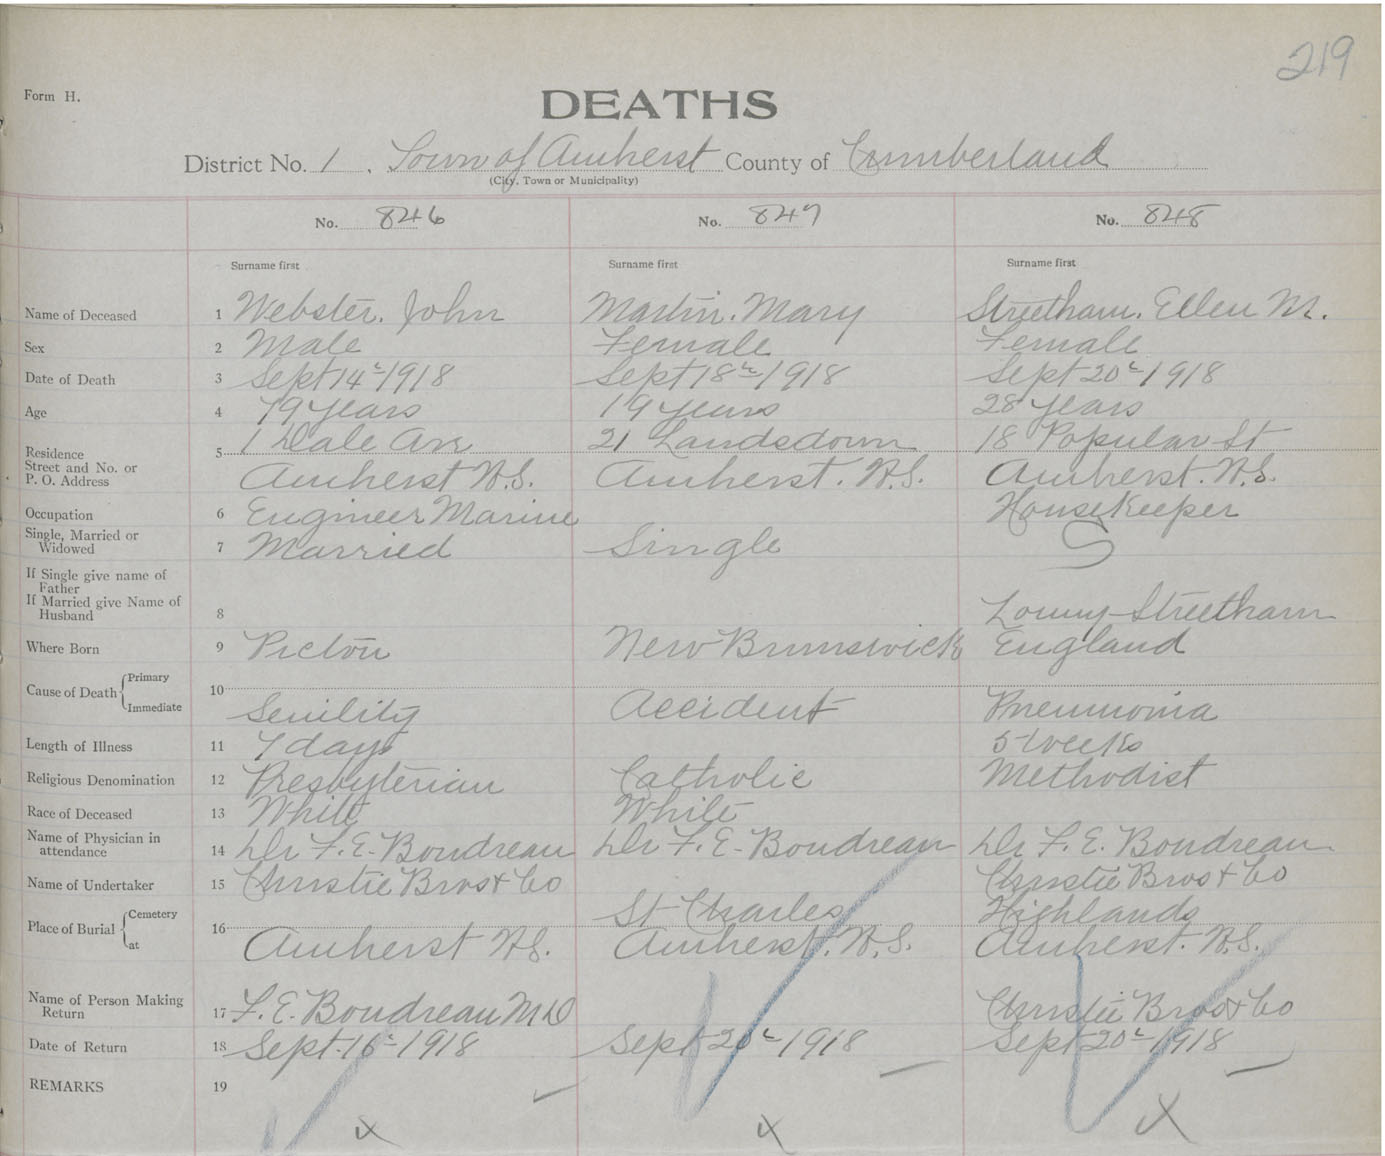 219
Form H.
DEATHS
District No. 1. Town of Amherst County of Cumberland
(City, Town or Municipality)
No. 846 No. 847 No. 848
Surname first Surname first Surname first
Name of Deceased 1 Webster. John Martin. Mary Streetham. Ellen M.
Sex 2 Male Female Female
Date of Death 3 Sept 14th 1918 Sept 18th 1918 Sept 20th 1918
Age 4 79 years 19 years 28 years
Residence 5 1 Dale Ave 21 Landsdown 18 Popular St
Street and No. or
P. O. Address Amherst N.S. Amherst. N.S. Amherst. N.S.
Occupation 6 Engineer Marine HouseKeeper
Single, Married or
Widowed 7 Married Single S
If Single give name of
Father
If Married give Name of
Husband 8 Streetham
Where Born 9 Pictou New Brunswick England
Cause of Death { Primary 10
Immediate Senility Accident Pneumonia
Length of Illness 11 7 days 5 weeks
Religious Denomination 12 Presbyterian Catholic Methodist
Race of Deceased 13 White White
Name of Physician in
attendance 14 Dr F. E. Boudreau Dr F. E. Boudreau Dr F. E. Boudreau
Name of Undertaker 15 Christie Bros & Co Christie Bros & Co
Place of Burial { Cemetery 16 St Charles Highlands
at Amherst N.S. Amherst. N.S. Amherst. N.S.
Name of Person Making
Return 17 F. E. Boudreau M D Christie Bros & Co
Date of Return 18 Sept 16th 1918 Sept 20th 1918 Sept 20th 1918
REMARKS 19
x x x